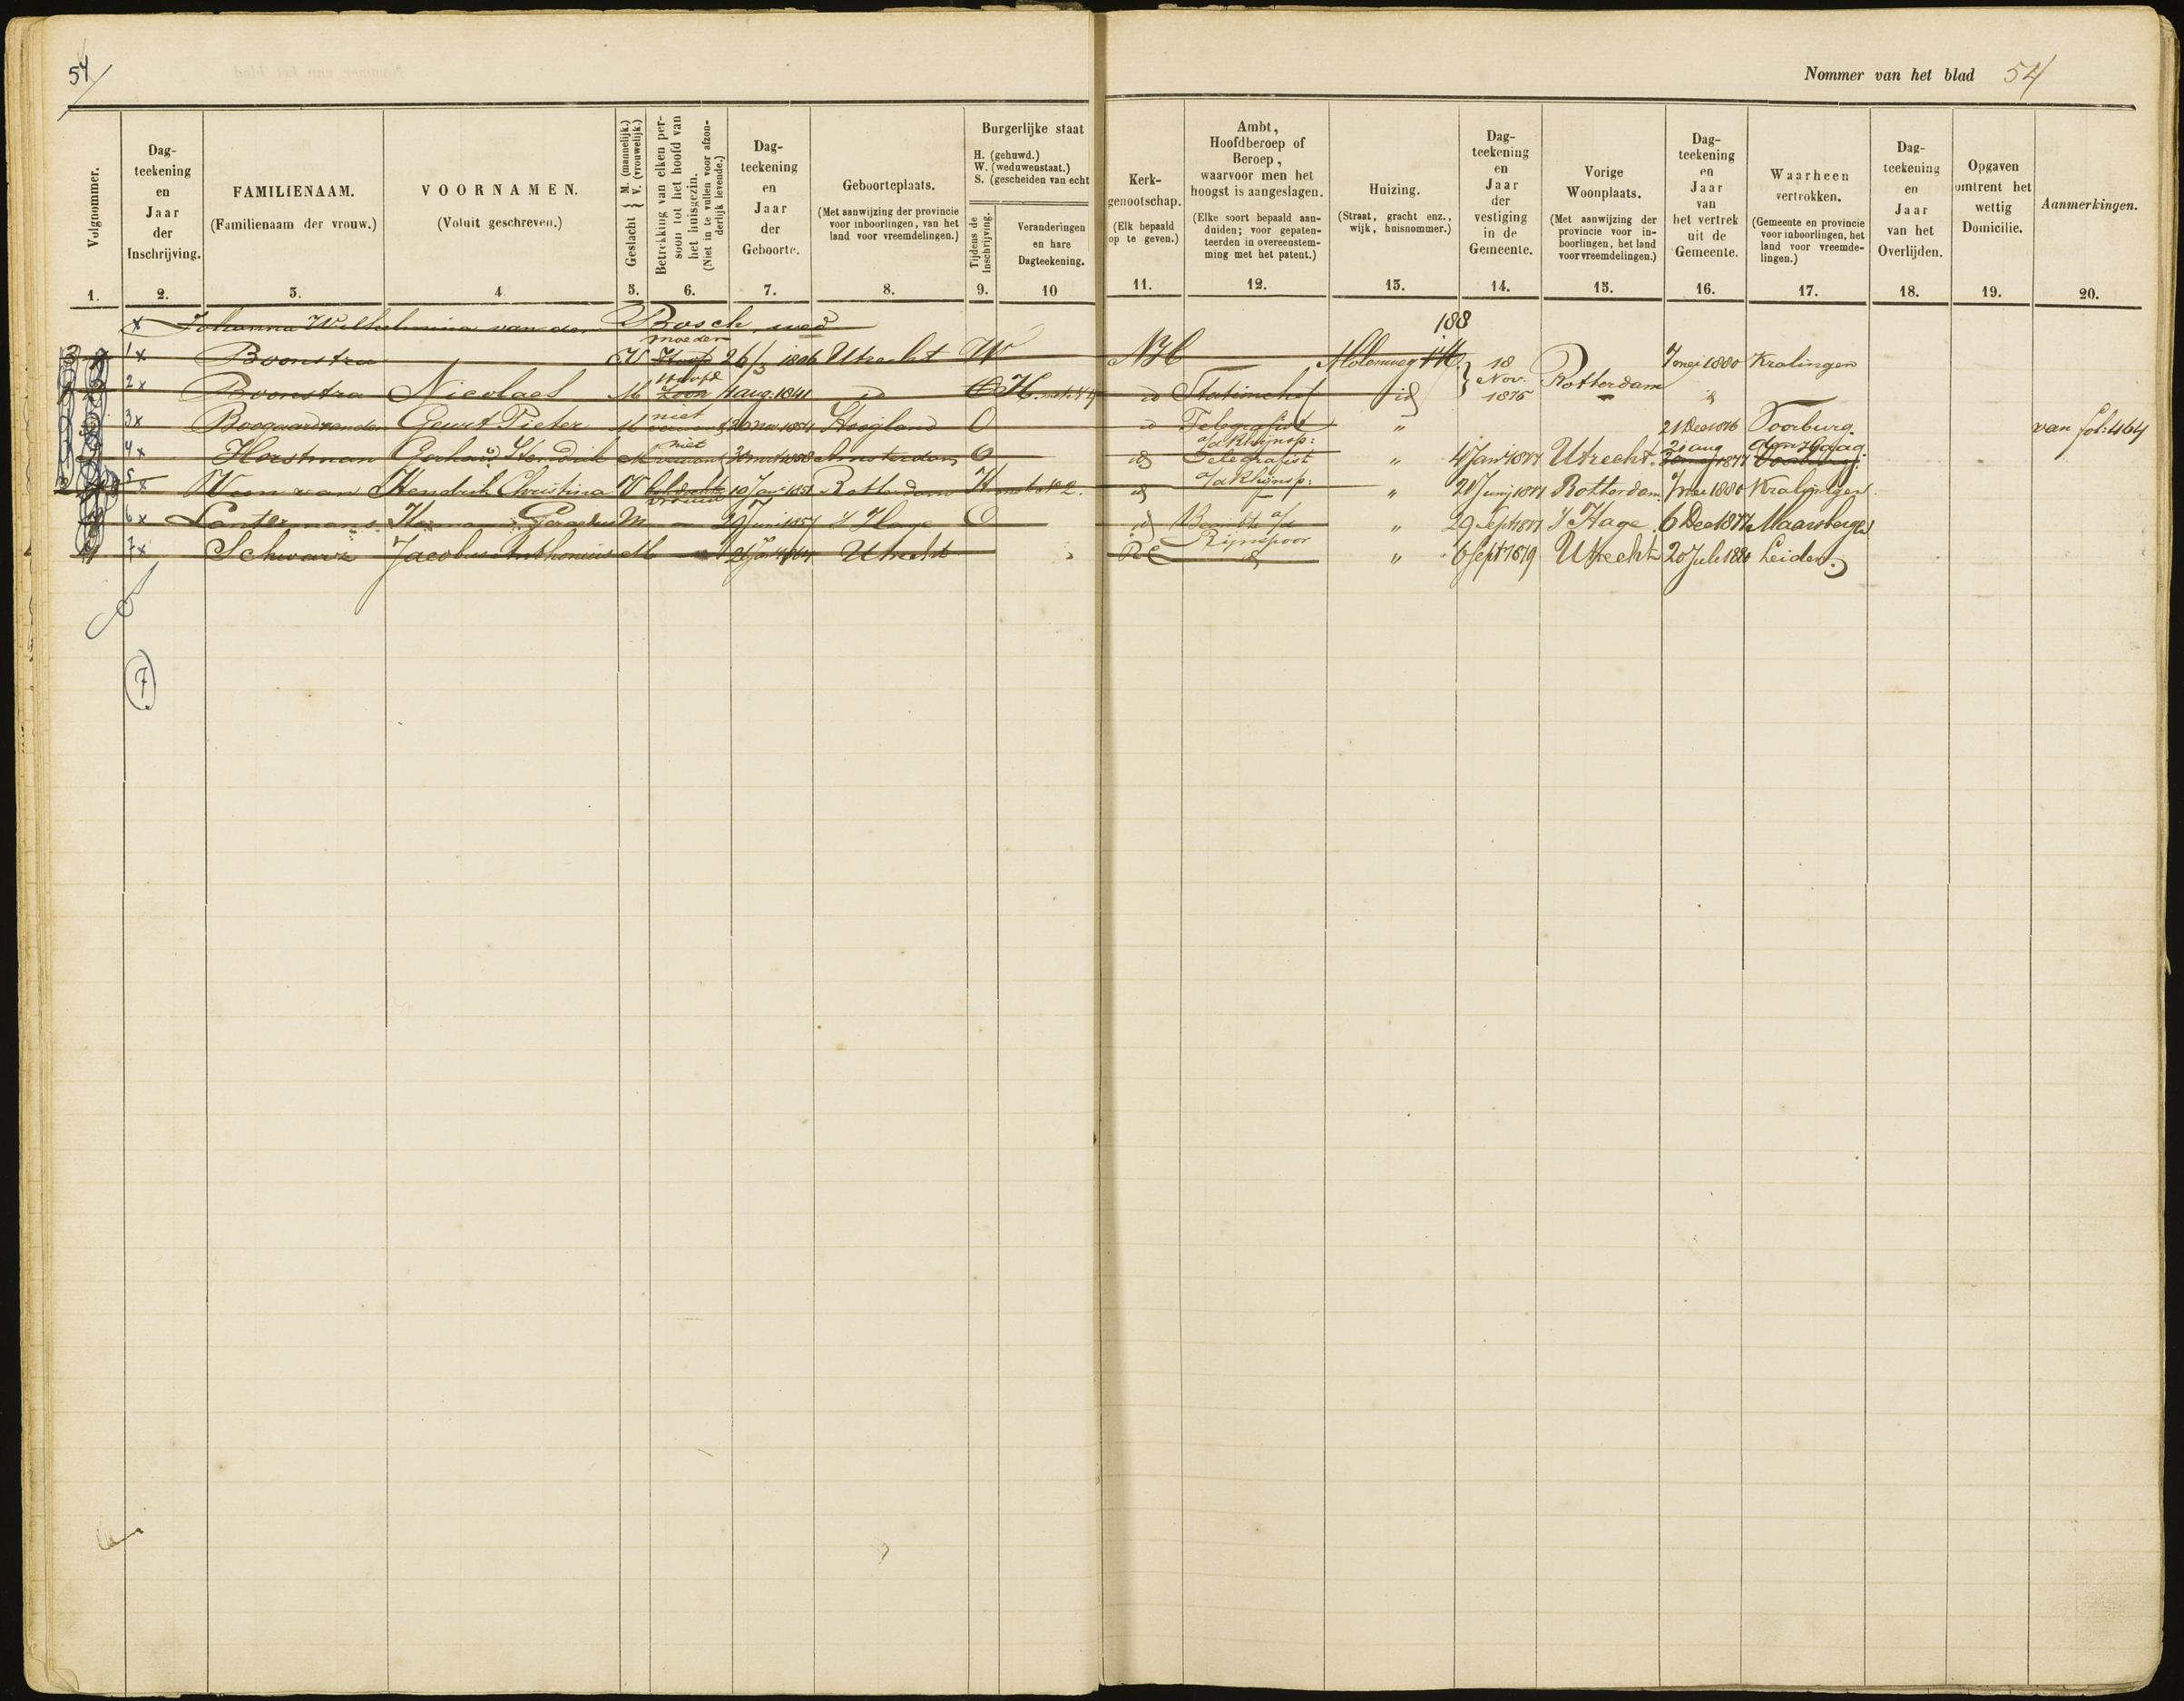 54
Nommer van het blad 54
Volgnommer.
Dag-
teekening
en
Jaar
der
Inschrijving.
FAMILIENAAM.
(Familienaam der vrouw.)
VOORNAMEN.
(Voluit geschreven.)
Geslacht { M. (mannelijk.) V. (vrouwelijk.)
Betrekking van elken per-
soon tot het hoofd van
het huisgezin.
(Niet in te vullen voor afzon-
derlijk levende.)
Dag-
teekening
en
Jaar
der
Geboorte.
Geboorteplaats.
(Met aanwijzing der provincie
voor inboorlingen, van het
land voor vreemdelingen.)
Burgerlijke staat
H. (gehuwd.)
W. (weduwenstaat.)
S. (gescheiden van echt
Tijdens de
Inschrijving.
Veranderingen
en hare
Dagteekening.
Kerk-
genootschap.
(Elk bepaald
op te geven.)
Ambt,
Hoofdberoep of
Beroep,
waarvoor men het
hoogst is aangeslagen.
(Elke soort bepaald aan-
duiden; voor gepaten-
teerden in overeenstem-
ming met het patent.)
Huizing.
(Straat, gracht enz.,
wijk, huisnommer.)
Dag-
teekening
en
Jaar
der
vestiging
in de
Gemeente.
Vorige
Woonplaats.
(Met aanwijzing der
provincie voor in-
boorlingen, het land
voor vreemdelingen.)
Dag-
teekening
en
Jaar
van
het vertrek
uit de
Gemeente.
Waarheen
vertrokken.
(Gemeente en provincie
voor inboorlingen, het
land voor vreemde-
lingen.)
Dag-
teekening
en
Jaar
van het
Overlijden.
Opgaven
omtrent het
wettig
Domicilie.
Aanmerkingen.
1. 2. 3. 4. 5. 6. 7. 8. 9. 10 11. 12. 13. 14. 15. 16. 17. 18. 19. 20.
x Johanna Wilhelmina van den Bosch, wed
188
moeder
1x Boonstra V Hoofd 26/3 1806 Utrecht W NH Molenweg 18 7 mei 1880 Kralingen
hoofd
2x Boonstra Nicolaas M Zoon 1 aug. 1841 id O H. id Stationschef id Nov. 1875 Rotterdam id
niet
3x Boogaard van den Geurt Pieter M 1854 Hoogland O id Telegrafist " 21 Dec 1876 Voorburg. van fol: 464
niet a/d Rhijnsp: 21 aug den Haag
4x Horstman Gerhard Hendrik M Amsterdam O id Telegrafist " 4 Jan 1877 Utrecht. 1877 Voorburg.
a/d Rhijnsp:
5x Veen van Hendrik Christina V vrouw 10 Jan 1851 Rotterdam H met no 2. id " 21 Junij 1877 Rotterdam 7 mei 1880 Kralingen.
6x Lantermans Gerardus M 29 Juni 1857 's Hage O id Beambte a/d Rijnspoor " 29 Sept 1877 's Hage 6 Dec 1877 Maarsbergen
7x Schwarz Jacobus Anthonius M Utrecht RC id " 6 Sept 1879 Utrecht 20 Juli 1880 Leiden
7